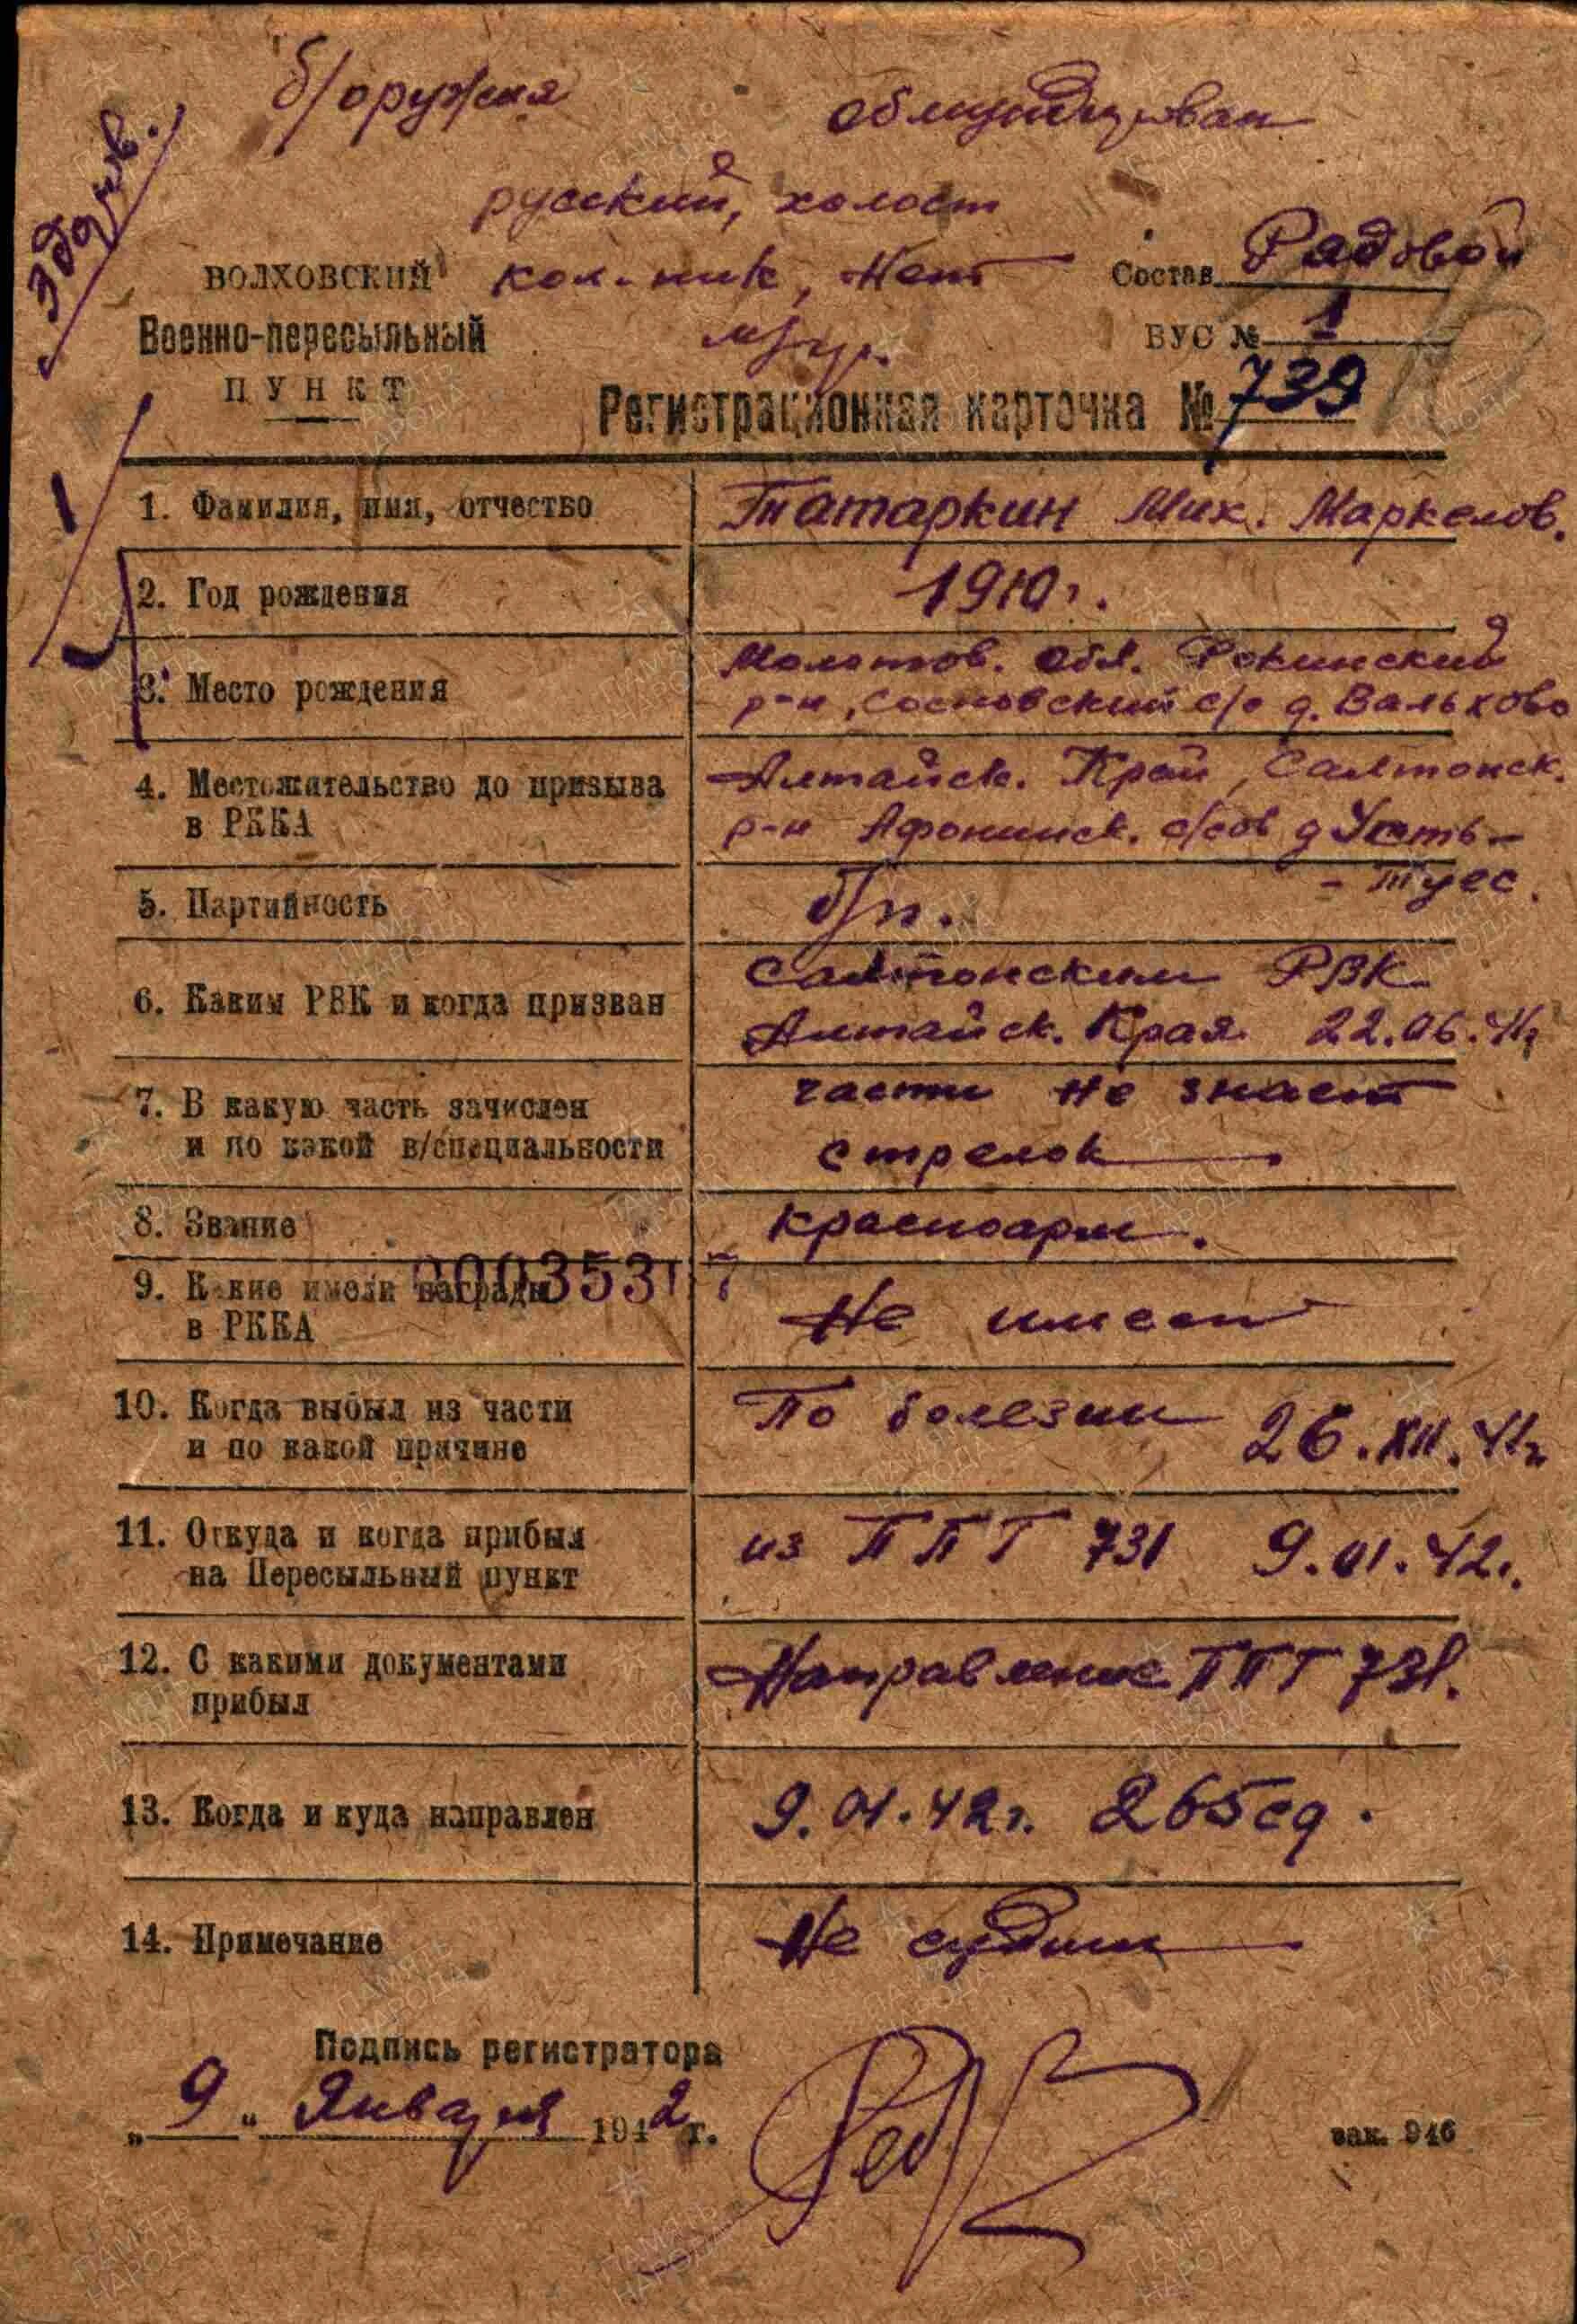 б/оружия обмундирован
здоров.
русский, холост
ВОЛХОВСКИЙ кол-ник, Нет Состав Рядовой
Военно-пересыльный ВУС № 1
ПУНКТ
Регистрационная карточка № 739
1. Фамилия, имя, отчество Татаркин Мих. Маркелов.
2. Год рождения 1910г.
3. Место рождения Молотов. обл. Фокинский
р-н, Сосновский с/с д. Вальхово
4. Местожительство до призыва Алтайск. Край, Салтонск.
в РККА р-н Афонинск. с/сов д Усть-
-Туес.
5. Партийность б/п.
6. Каким РВК и когда призван Салтонским РВК
Алтайск. Края 22.06.41г
7. В какую часть зачислен части не знает
и по какой в/специальности стрелок
8. Звание красноарм.
9. Какие имели награды Не имеет
в РККА
10. Когда выбыл из части По болезни 26.XII.41г
и по какой причине
11. Откуда и когда прибыл из ППГ 731 9.01.42г.
на Пересыльный пункт
12. С какими документами Направление ППГ 731.
прибыл
13. Когда и куда направлен 9.01.42г. 265сд.
14. Примечание Не судим
Подпись регистратора
„9“ Января 1942 г.
зак. 946
ПАМЯТЬ НАРОДА